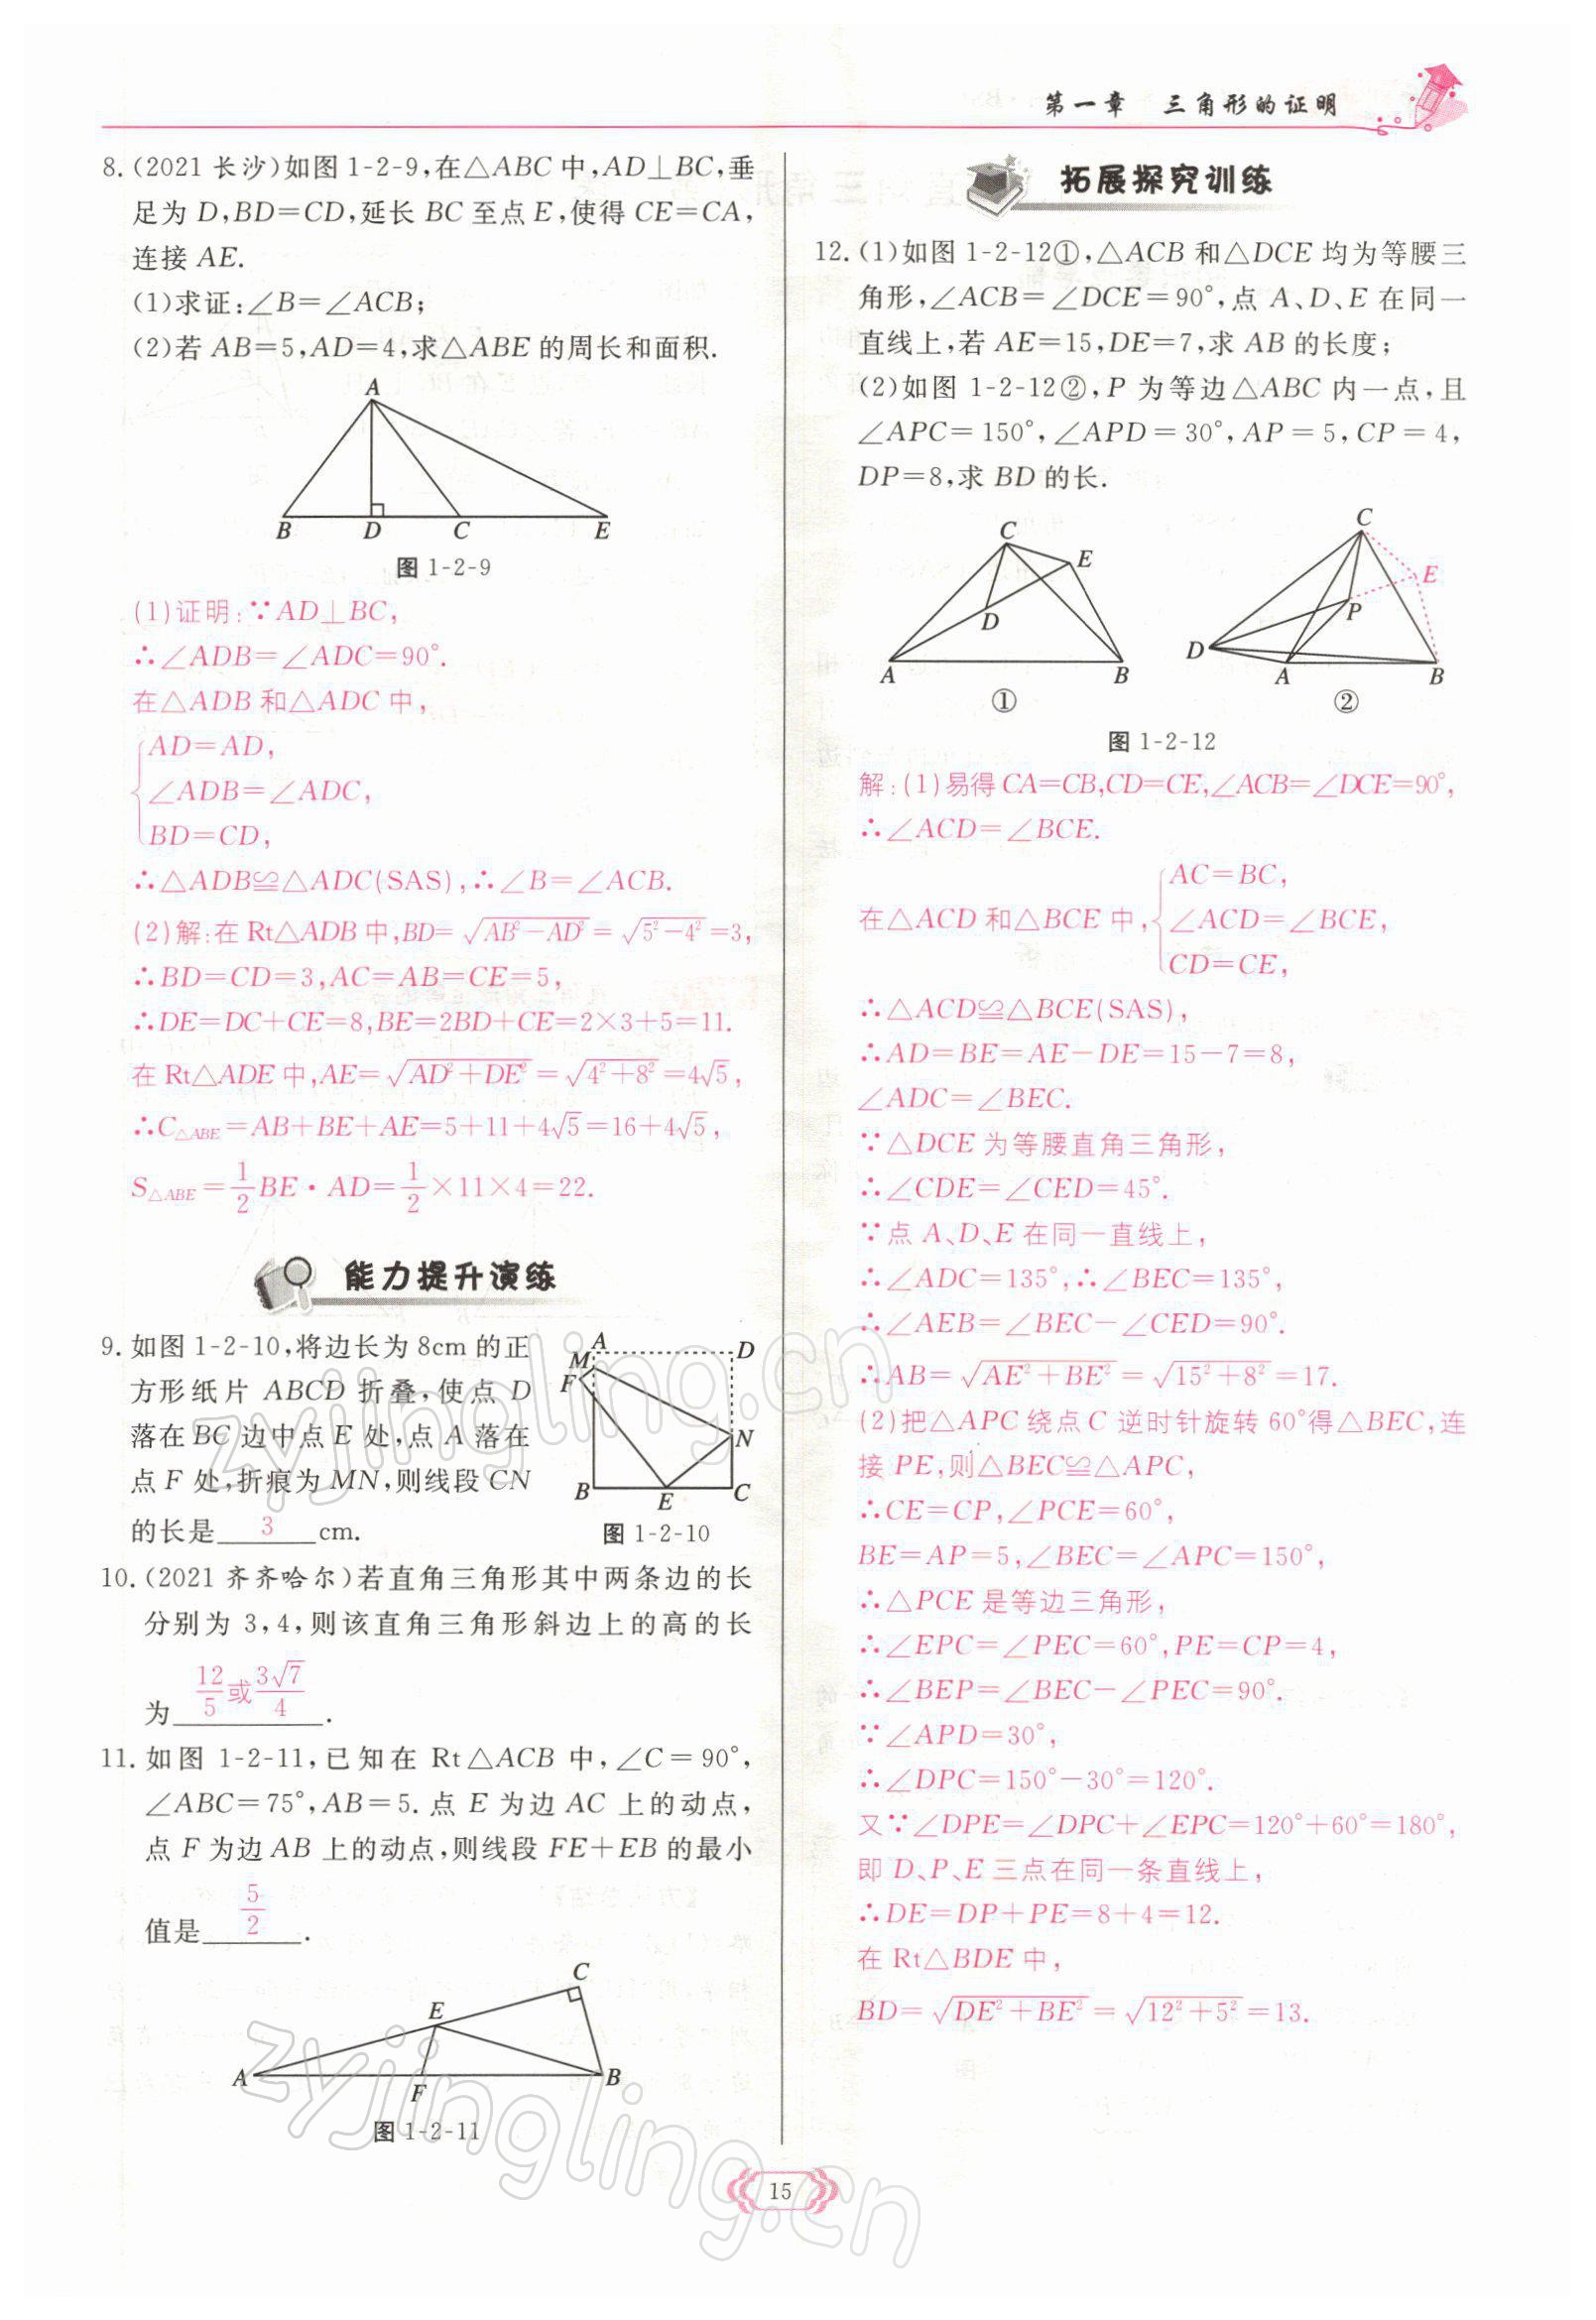 第一章　三角形的证明
8.(2021长沙)如图1-2-9,在△ABC中,AD⊥BC,垂
足为D,BD=CD,延长BC至点E,使得CE=CA,
连接AE.
(1)求证:∠B=∠ACB;
(2)若AB=5,AD=4,求△ABE的周长和面积.
A
B D C E
图1-2-9
(1)证明:∵AD⊥BC,
∴∠ADB=∠ADC=90°.
在△ADB和△ADC中,
AD=AD,
∠ADB=∠ADC,
BD=CD,
∴△ADB≌△ADC(SAS),∴∠B=∠ACB.
(2)解:在Rt△ADB中,BD=√(AB²-AD²)=√(5²-4²)=3,
∴BD=CD=3,AC=AB=CE=5,
∴DE=DC+CE=8,BE=2BD+CE=2×3+5=11.
在Rt△ADE中,AE=√(AD²+DE²)=√(4²+8²)=4√5,
∴C△ABE=AB+BE+AE=5+11+4√5=16+4√5,
S△ABE=1/2 BE·AD=1/2×11×4=22.
能力提升演练
9.如图1-2-10,将边长为8cm的正
方形纸片ABCD折叠,使点D
落在BC边中点E处,点A落在
点F处,折痕为MN,则线段CN
的长是 3 cm.
A D
M
F
N
B E C
图1-2-10
10.(2021齐齐哈尔)若直角三角形其中两条边的长
分别为3,4,则该直角三角形斜边上的高的长
为 12/5或3√7/4 .
11.如图1-2-11,已知在Rt△ACB中,∠C=90°,
∠ABC=75°,AB=5.点E为边AC上的动点,
点F为边AB上的动点,则线段FE+EB的最小
值是 5/2 .
C
E
A F B
图1-2-11
拓展探究训练
12.(1)如图1-2-12①,△ACB和△DCE均为等腰三
角形,∠ACB=∠DCE=90°,点A、D、E在同一
直线上,若AE=15,DE=7,求AB的长度;
(2)如图1-2-12②,P为等边△ABC内一点,且
∠APC=150°,∠APD=30°,AP=5,CP=4,
DP=8,求BD的长.
C
E
D
A B
①
C
E
P
D
A B
②
图1-2-12
解:(1)易得CA=CB,CD=CE,∠ACB=∠DCE=90°,
∴∠ACD=∠BCE.
在△ACD和△BCE中,
AC=BC,
∠ACD=∠BCE,
CD=CE,
∴△ACD≌△BCE(SAS),
∴AD=BE=AE-DE=15-7=8,
∠ADC=∠BEC.
∵△DCE为等腰直角三角形,
∴∠CDE=∠CED=45°.
∵点A、D、E在同一直线上,
∴∠ADC=135°,∴∠BEC=135°,
∴∠AEB=∠BEC-∠CED=90°.
∴AB=√(AE²+BE²)=√(15²+8²)=17.
(2)把△APC绕点C逆时针旋转60°得△BEC,连
接PE,则△BEC≌△APC,
∴CE=CP,∠PCE=60°,
BE=AP=5,∠BEC=∠APC=150°,
∴△PCE是等边三角形,
∴∠EPC=∠PEC=60°,PE=CP=4,
∴∠BEP=∠BEC-∠PEC=90°.
∵∠APD=30°,
∴∠DPC=150°-30°=120°.
又∵∠DPE=∠DPC+∠EPC=120°+60°=180°,
即D、P、E三点在同一条直线上,
∴DE=DP+PE=8+4=12.
在Rt△BDE中,
BD=√(DE²+BE²)=√(12²+5²)=13.
15
zyjingling.cn
zyjingling.cn